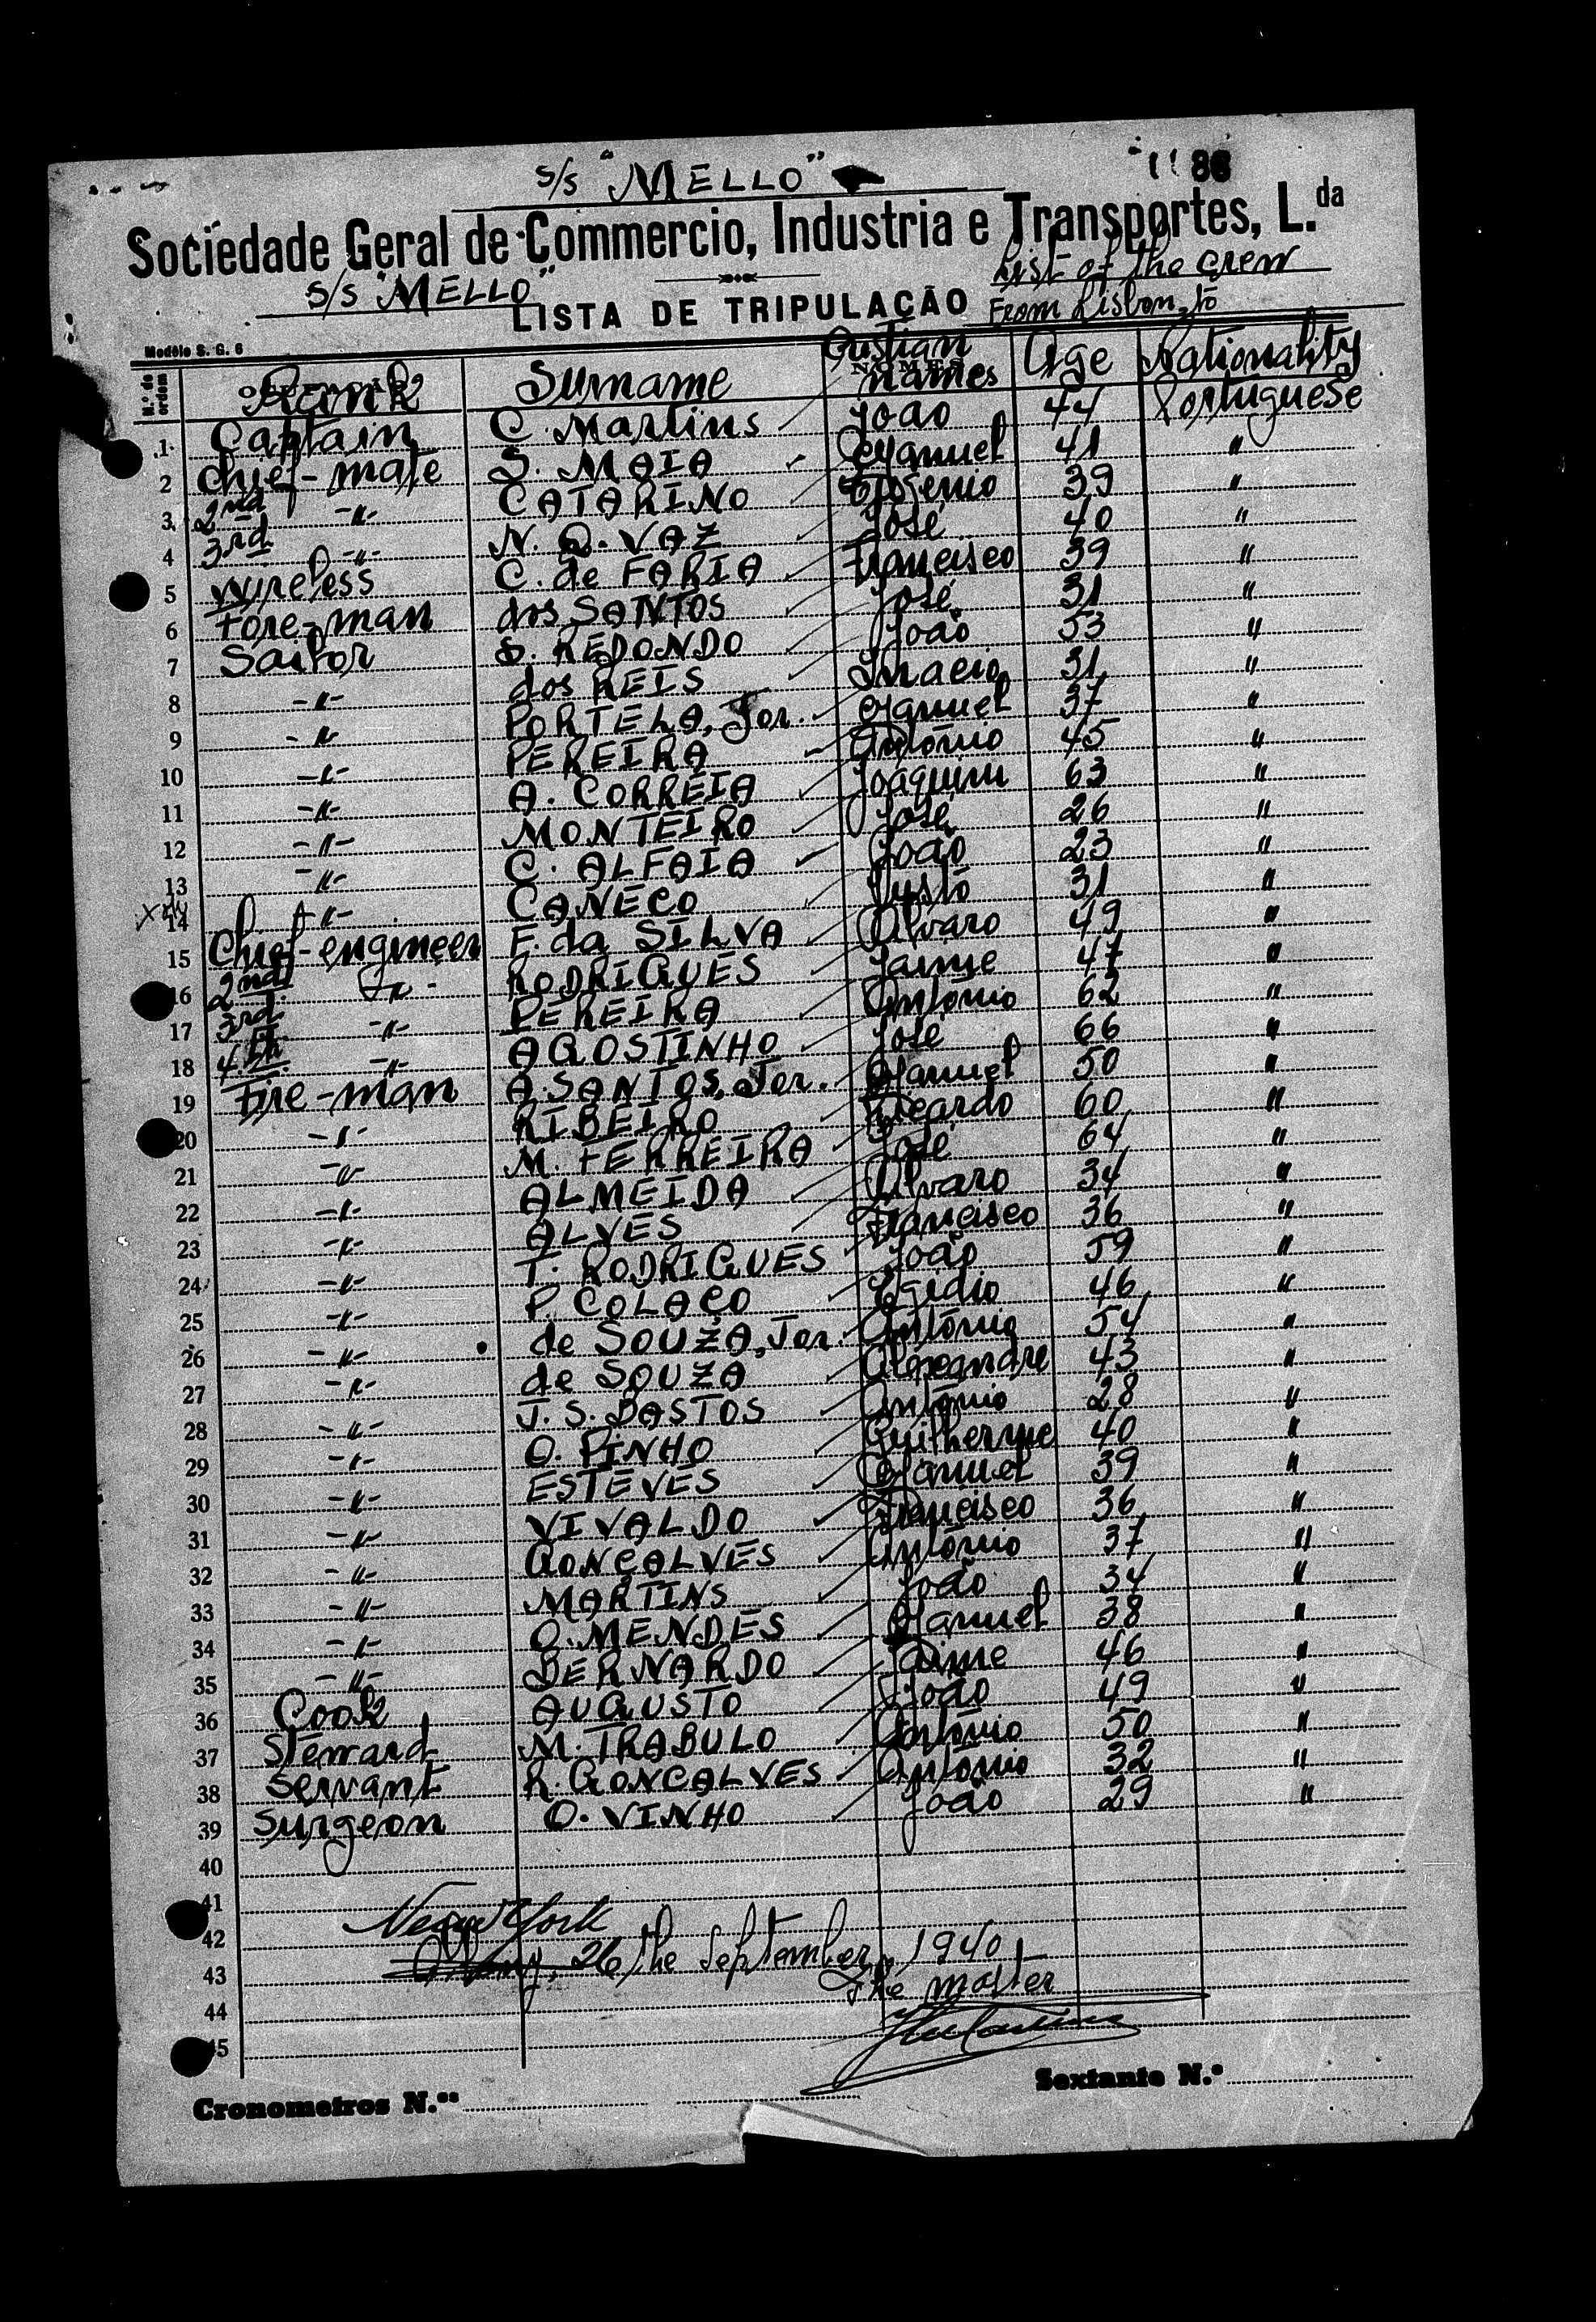 s/s "MELLO"
86
Sociedade Geral de Commercio, Industria e Transportes, L.da
s/s "MELLO"
List of the crew
LISTA DE TRIPULAÇÃO From Lisbon, to
Modêlo S. G. 6
N.º de ordem Rank Surname Cristian names Age Nationality
1 Captain C. Martins João 44 Portuguese
2 Chief-mate S. MAIA Manuel 41 "
3 2nd -"- CATARINO 39 "
4 3rd -"- N. Q. VAZ José 40 "
5 wireless C. de FARIA Francisco 39 "
6 Fore-man dos SANTOS José 31 "
7 Sailor S. REDONDO João 53 "
8 -"- dos REIS Inacio 31 "
9 -"- PORTELA, Jor. Manuel 37 "
10 -"- PEREIRA António 45 "
11 -"- A. CORREIA Joaquim 63 "
12 -"- MONTEIRO José 26 "
13 -"- C. ALFAIA João 23 "
14 -"- CANECO Justo 31 "
15 Chief-engineer F. da SILVA Alvaro 49 "
16 2nd -"- RODRIGUES Jaime 47 "
17 3rd -"- PEREIRA António 62 "
18 4th -"- AGOSTINHO José 66 "
19 Fire-man A. SANTOS, Jor. Manuel 50 "
20 -"- RIBEIRO Ricardo 60 "
21 -"- M. FERREIRA José 64 "
22 -"- ALMEIDA Alvaro 34 "
23 -"- ALVES Francisco 36 "
24 -"- T. RODRIGUES João 59 "
25 -"- P. COLAÇO Egidio 46 "
26 -"- de SOUZA, Jor. António 54 "
27 -"- de SOUZA Alexandre 43 "
28 -"- J. S. BASTOS António 28 "
29 -"- O. PINHO Guilherme 40 "
30 -"- ESTEVES Manuel 39 "
31 -"- VIVALDO Francisco 36 "
32 -"- GONÇALVES António 37 "
33 -"- MARTINS João 34 "
34 -"- O. MENDES Manuel 38 "
35 -"- BERNARDO Jaime 46 "
36 Cook AUGUSTO João 49 "
37 Steward M. TRABULO António 50 "
38 Servant R. GONCALVES António 32 "
39 Surgeon O. VINHO João 29 "
40
41
42 New York
43 26 the September, 1940
The master
44
45
Cronometros N.os Sextante N.º